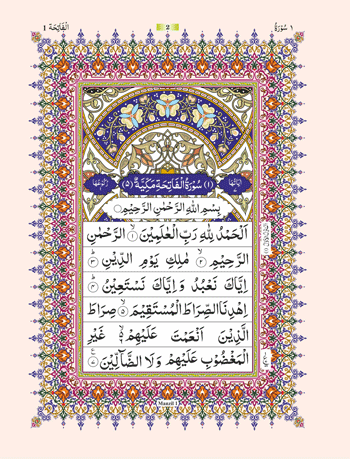 ١ سُوْرَةُ 2 اَلْفَاتِحَة 1
(١) سُوْرَةُ الْفَاتِحَةِ مَكِّيَّةٌ (٥)
بِسْمِ اللّٰهِ الرَّحْمٰنِ الرَّحِيْمِ
اَلْحَمْدُ لِلّٰهِ رَبِّ الْعٰلَمِيْنَ ۙ‏﴿١﴾ الرَّحْمٰنِ
الرَّحِيْمِ ۙ‏﴿٢﴾ مٰلِكِ يَوْمِ الدِّيْنِ ؕ‏﴿٣﴾
اِيَّاكَ نَعْبُدُ وَ اِيَّاكَ نَسْتَعِيْنُ ؕ‏﴿٤﴾
اِهْدِنَا الصِّرَاطَ الْمُسْتَقِيْمَ ۙ‏﴿٥﴾ صِرَاطَ
الَّذِيْنَ اَنْعَمْتَ عَلَيْهِمْ ۙ۬‏﴿٦﴾ غَيْرِ
الْمَغْضُوْبِ عَلَيْهِمْ وَ لَا الضَّآلِّيْنَ‏﴿٧﴾
Manzil 1